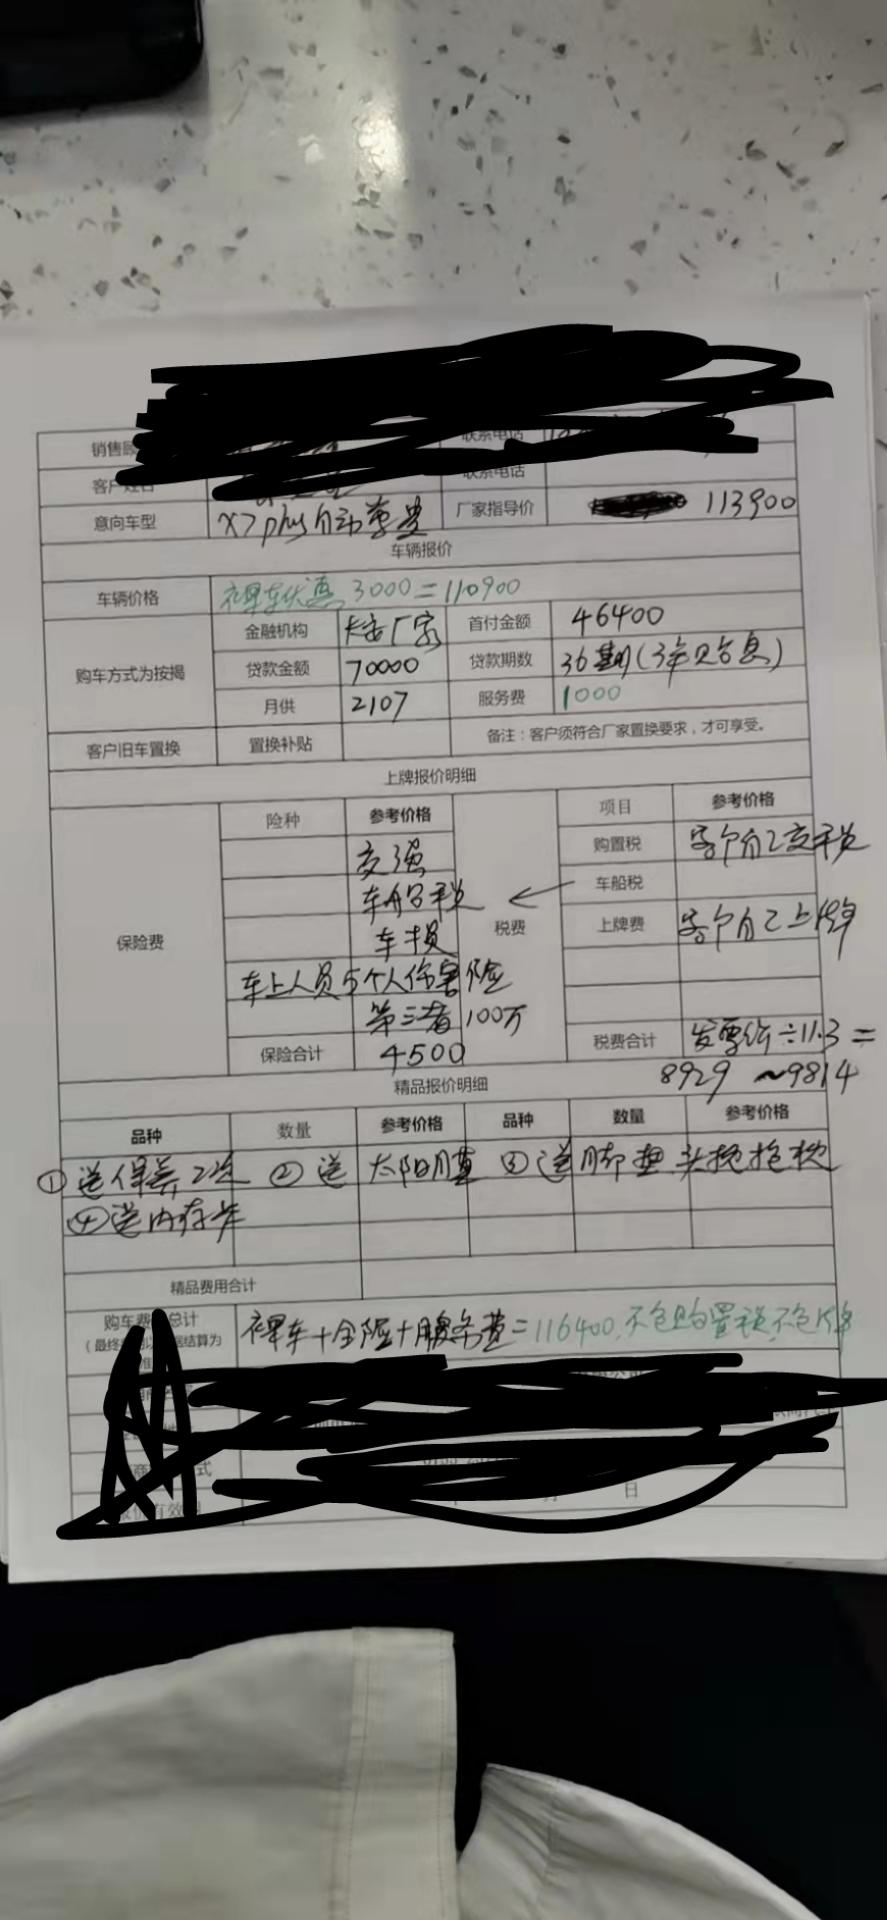 销售顾 联系电话
客户姓名 联系电话
意向车型 X7plus自动尊贵 厂家指导价 113900
车辆报价
车辆价格 裸车优惠3000=110900
购车方式为按揭 金融机构 长安厂家 首付金额 46400
贷款金额 70000 贷款期数 36期(3年贝占息)
月供 2107 服务费 1000
客户旧车置换 置换补贴 备注：客户须符合厂家置换要求，才可享受。
上牌报价明细
险种 参考价格 项目 参考价格
交强 购置税 客户自己交税
车船税 车船税
保险费 车损 税费 上牌费 客户自己上牌
车上人员5个人伤害险
第三者100万
保险合计 4500 税费合计 发票价÷11.3=
8929 ~9814
精品报价明细
品种 数量 参考价格 品种 数量 参考价格
①送保养2次 ②送太阳膜 ③送脚垫 头枕抱枕
④送内存卡
精品费用合计
购车费 总计 裸车+全险+服务费=116400,不包购置税,不包上牌
(最终 结算为
式
日